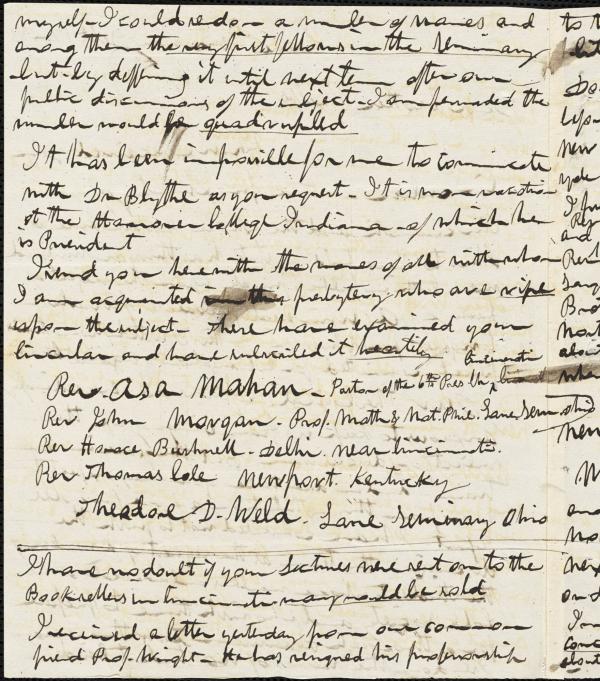 myself - I could redon a number of names and
among them the very first fellows in the Seminary
but by deffering it until next term after our
public discussions of the subject - I am persuaded the
number would be quadrupled
It has been impossible for me to communicate
with Dr Blythe as you request - It is now vacation
at the Hanover College Indiana - of which he
is President
I send you herewith the names of all with whom
I am acquainted in this presbytery who are ripe
upon the subject - These have examined your
circular and have subscribed it heartily
Cincinnati
Rev. Asa Mahan - Pastor of the 6th Pres Ch
Rev John Morgan - Prof. Math & Nat. Phil. Lane Sem
Rev Horace Bushnell - Delhi near Cincinnati.
Rev Thomas Cole Newport Kentucky
Theodore D. Weld. Lane Seminary Ohio
I have no doubt if your Lectures were sent on to the
Booksellers in Cincinnati many would be sold
I received a letter yesterday from our common
friend Prof. Wright - He has resigned his professorship
to
Do
new
I
and
Rev
Bro
Nort
about
when
Ohio
New
and
next
on
I
conc
about